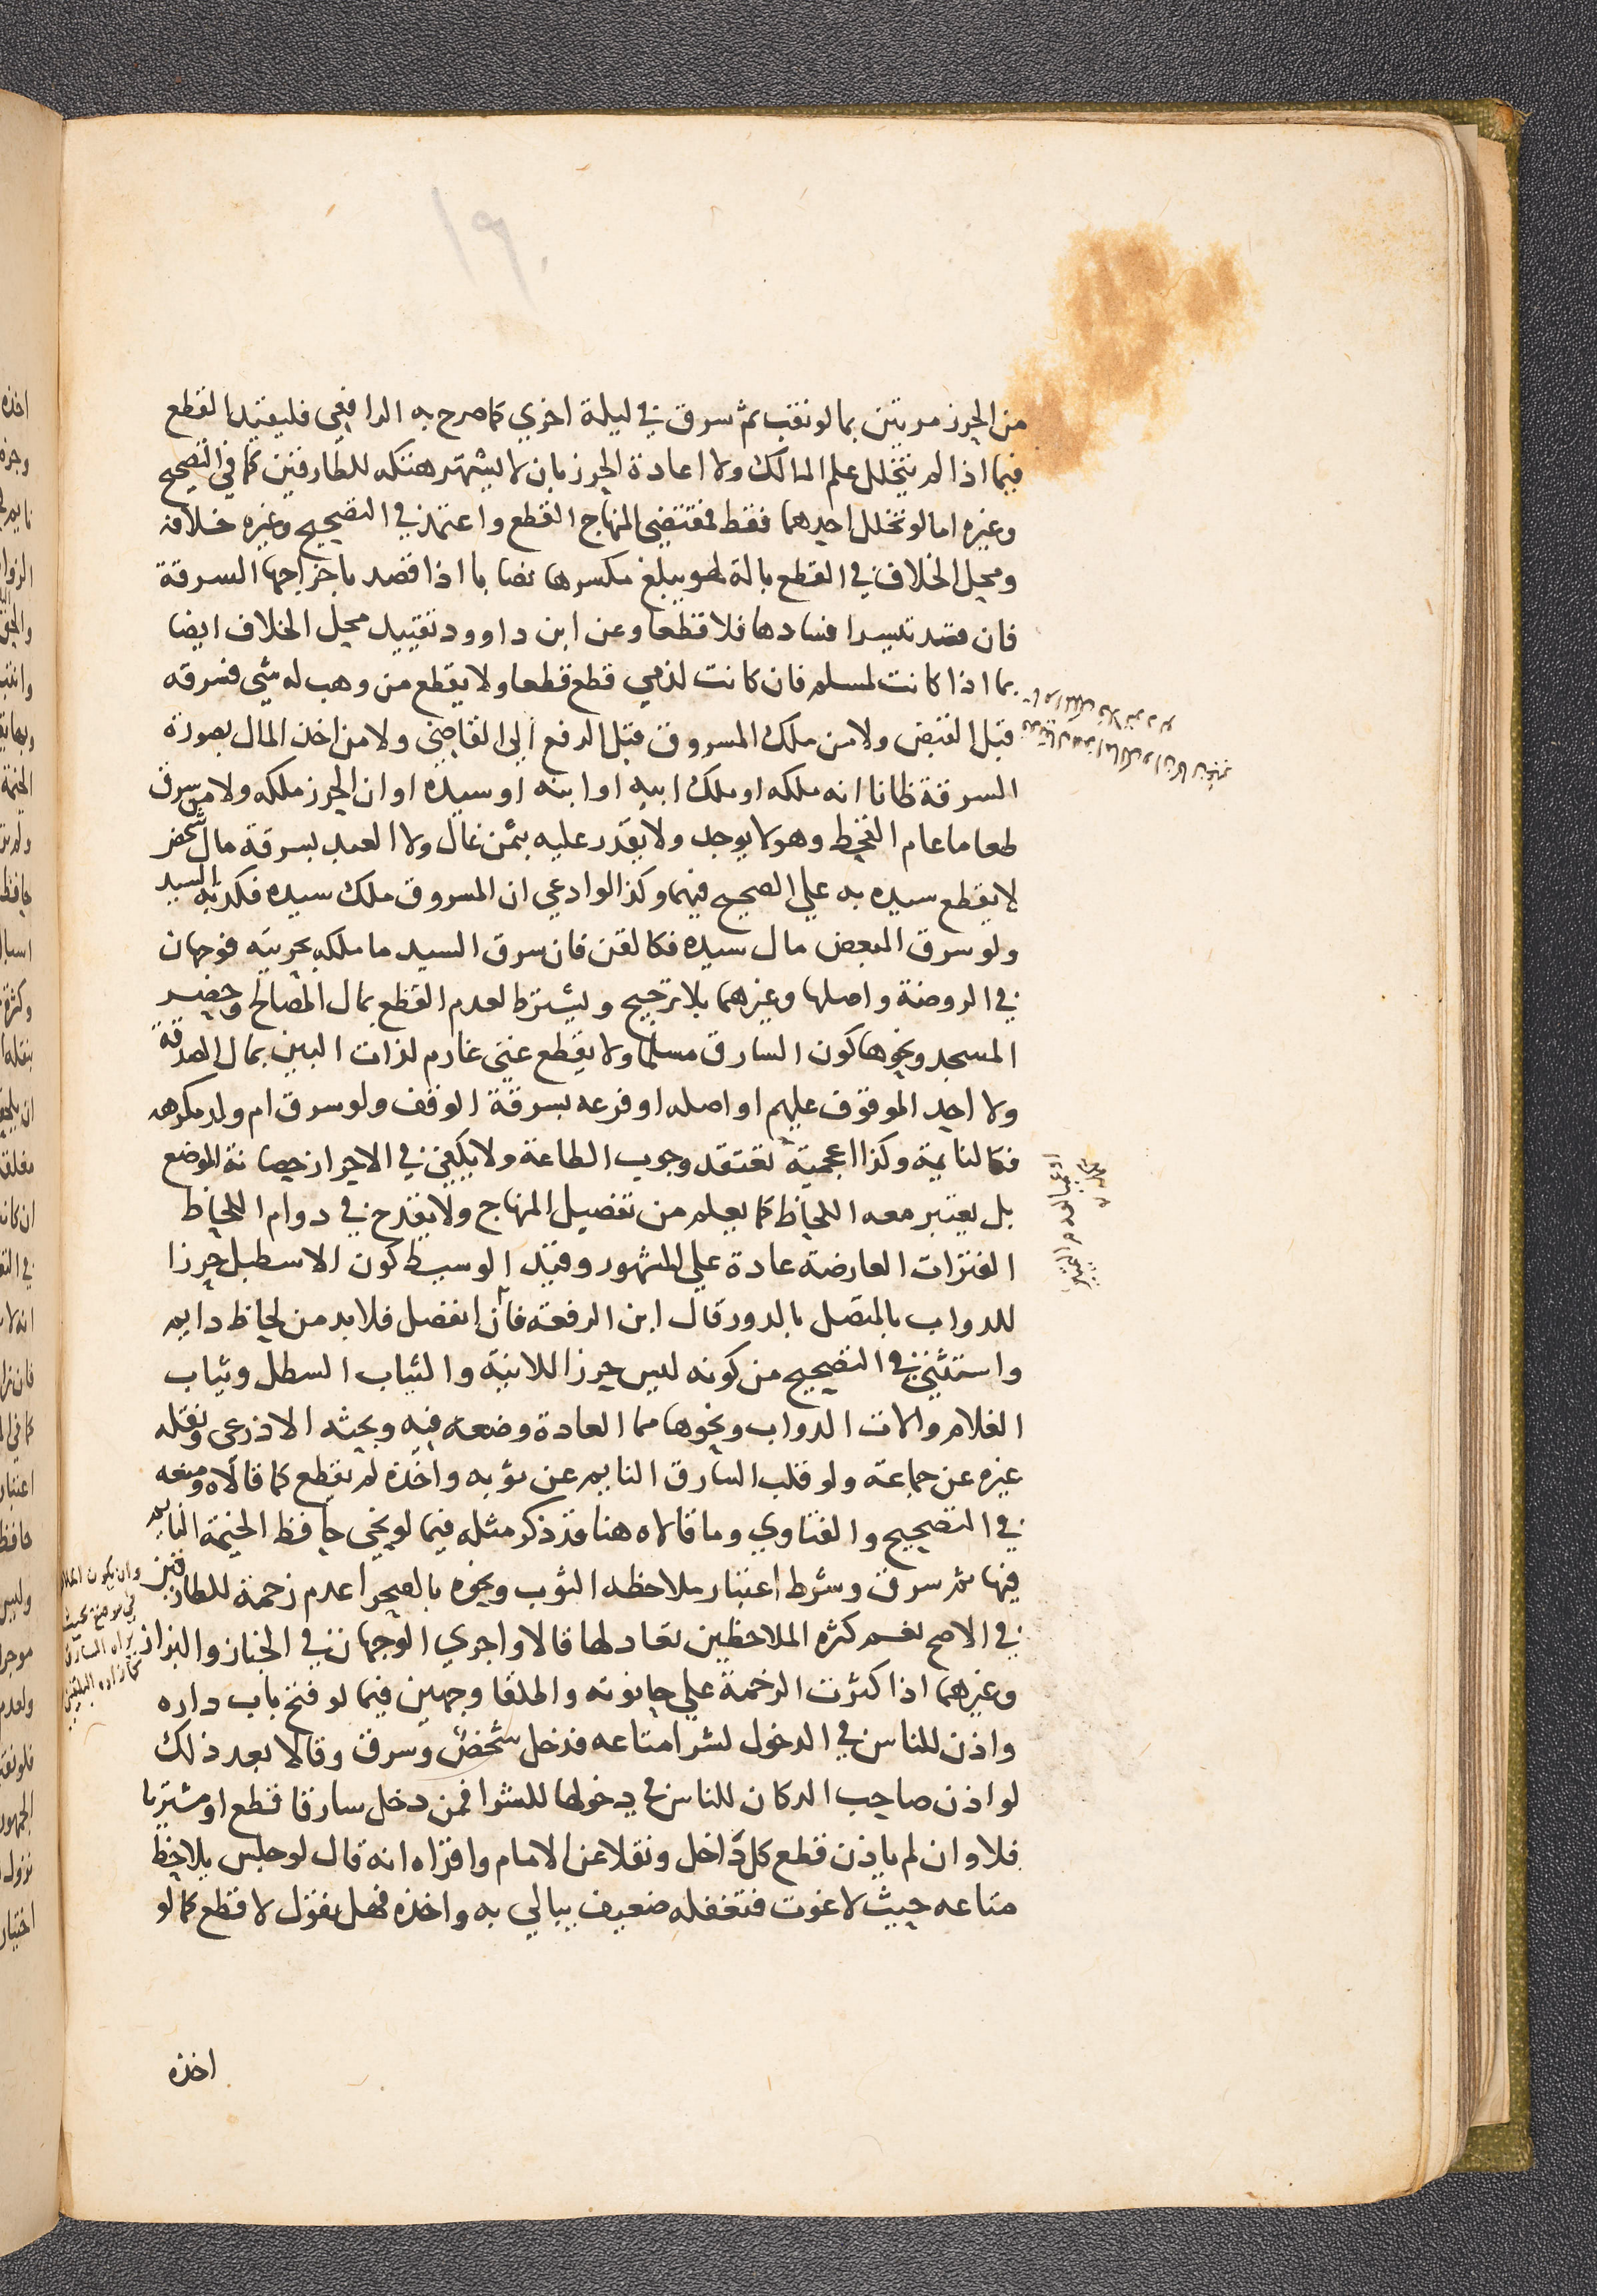 ١٩٠
من الحرز مرتين بما لو نقب ثم سرق في ليلة اخري كما صرح به الرافعي فليقيد القطع
فيما اذا لم يتخلل علم المالك ولا اعادة الحرز بان لا يشتهر هتكه للطارقين كما في التصحيح
وغيره اما لو تخلل احدهما فقط فمقتضي المنهاج القطع واعتمد في التصحيح وغيره خلافه
ومحل الخلاف في القطع بالة لهو يبلغ مكسرها نصابا اذا قصد باخراجها السرقة
فان قصد تيسر افسادها فلا قطعا وعن ابن داوود تقييد محل الخلاف ايضا
بما اذا كانت لمسلم فان كانت لذمي قطع قطعا ولا يقطع من وهب له شي فسرقه
قبل القبض ولا من ملك المسروق قبل الرفع الي القاضي ولا من اخذ المال بصورة
السرقة ظانا انه ملكه او ملك ابيه او ابنه او سيده او ان الحرز ملكه ولا من سرق
طعاما عام القحط وهو لا يوجد ولا يقدر عليه بثمن غال ولا العبد بسرقة مال شخص
لا يقطع سيده به علي الصحيح فيهما وكذا لو ادعي ان المسروق ملك سيده فكذبه السيد
ولو سرق المبعض مال سيده فكالقن فان سرق السيد ما ملكه بحريته فوجهان
في الروضة واصلها وغيرهما بلا ترجيح ويشترط لعدم القطع بمال المصالح وحضير
المسجد ونحوها كون السارق مسلما ولا يقطع غني غارم لذات البين بمال الصدقة
ولا احد الموقوف عليهم او اصله او فرعه بسرقة الوقف ولو سرق ام ولد مكرهه
فكالنايمة وكذا اعجمية تعتقد وجوب الطاعة ولا يكفي في الاحراز حصانة الموضع
بل يعتبر معه اللحاظ كما يعلم من تفصيل المنهاج ولا يقدح في دوام اللحاظ
الفترات العارضة عادة علي المشهور وقيد الوسيط كون الاسطبل حرزا
للدواب بالمتصل بالدور قال ابن الرفعة فان انفصل فلا بد من لحاظ دايم
واستثني في التصحيح من كونه ليس حرزا للانية والثياب السطل وثياب
الغلام والات الدواب ونحوها مما العادة وضعه فيه وبحثه الاذرعي ونقله
غيره عن جماعة ولو قلب السارق النايم عن ثوبه واخذه لم يقطع كما قالاه ومنعه
في التصحيح والفتاوي وما قالاه هنا قد ذكر مثله فيما لو نحي حافظ الخيمة النايم
فيها ثم سرق وشرط اعتبار ملاحظه الثوب ونحوه بالصحرا عدم زحمة للطارقين
وان يكون الملاحظ
في موضع بحيث
يراه السارق
كما زاده البلقيني
في الاصح نعم كثره الملاحظين تعادلها قالا واجري الوجهان في الخباز والبزاز
وغيرهما اذا كثرت الزحمة علي حانوته واطلقا وجهين فيما لو فتح باب داره
واذن للناس في الدخول لشرا متاعه فدخل شخص وسرق وقالا بعد ذلك
لو اذن صاحب الدكان للناس في دخولها للشرا فمن دخل سارقا قطع او مشتريا
فلا وان لم ياذن قطع كل داخل ونقلا عن الامام واقراه انه قال لو جلس يلاحظ
متاعه حيث لا غوث فتغفله ضعيف يبالي به واخذه فهل نقول لا قطع كما لو
اخذه